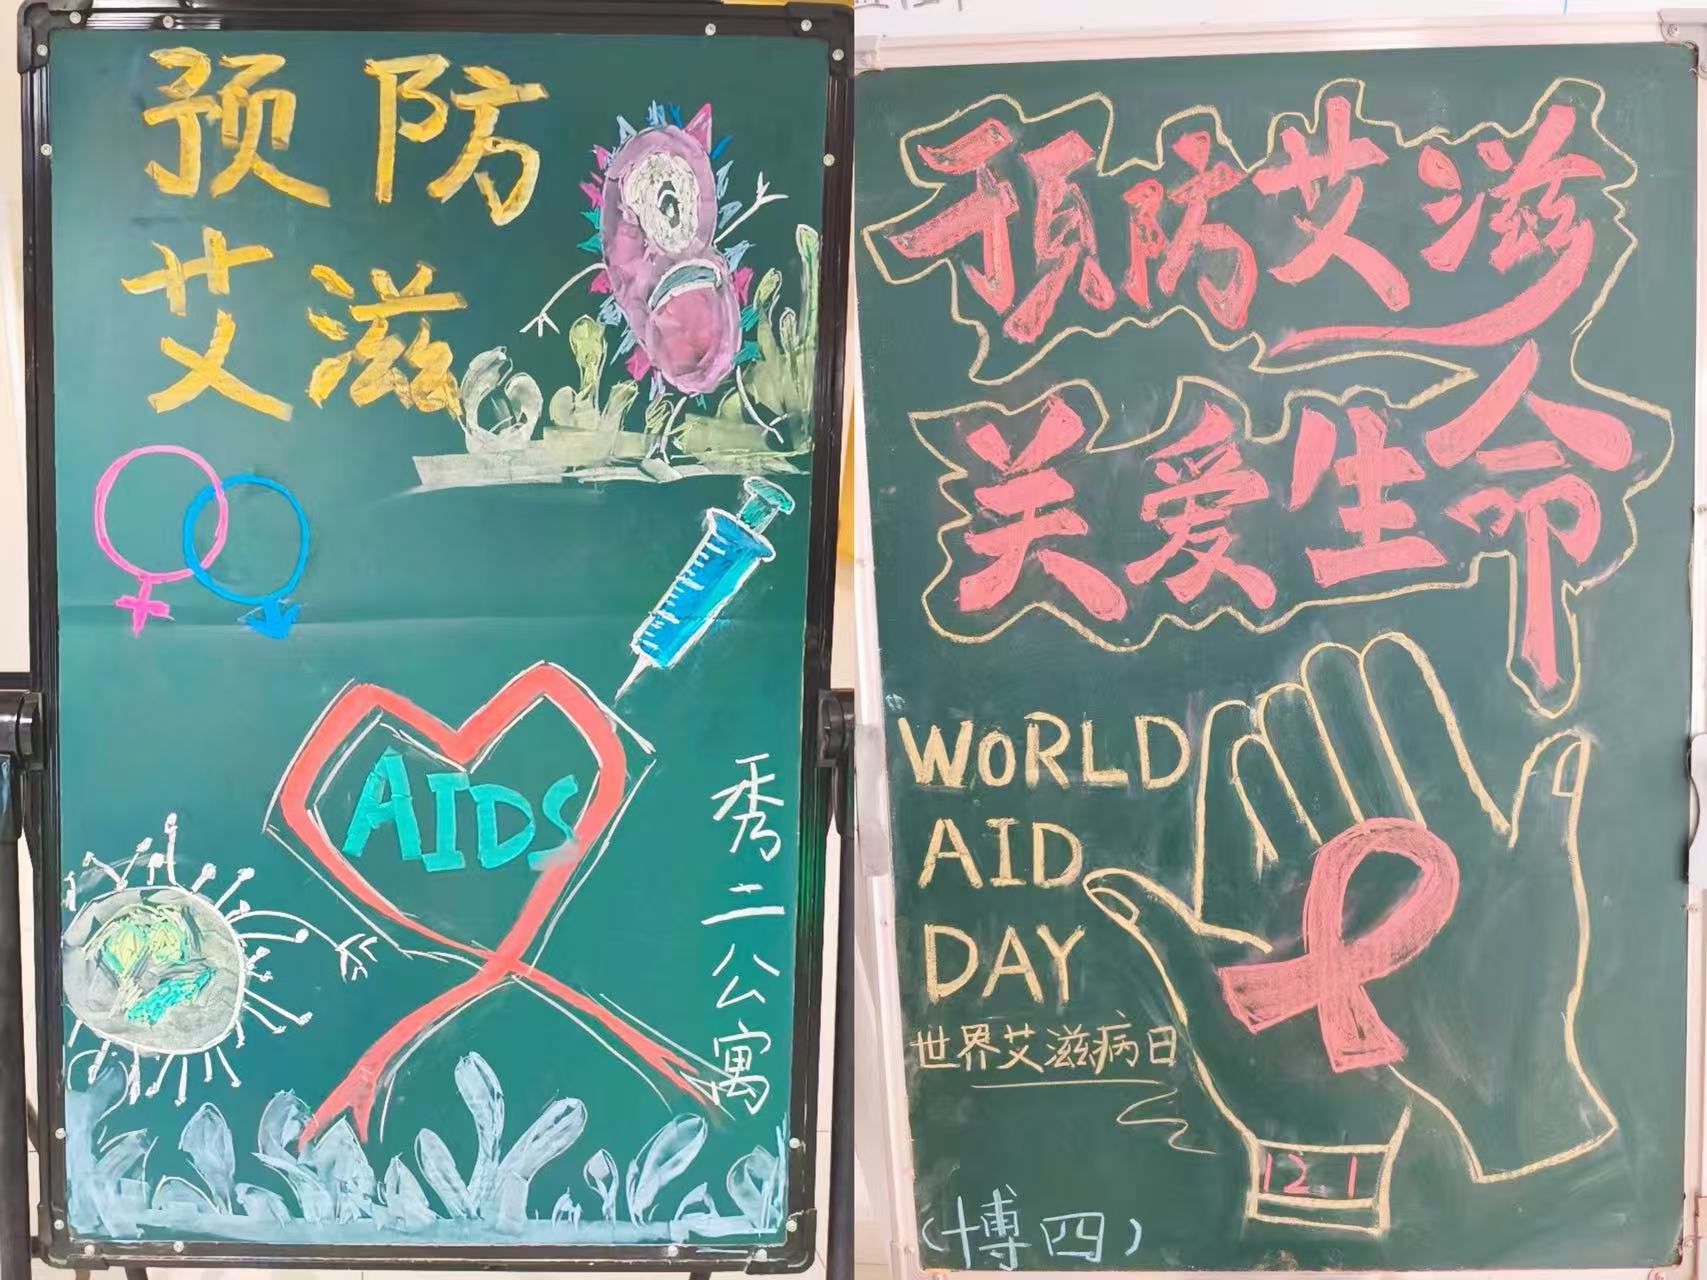 预防
艾滋
AIDS
秀二公寓
预防艾滋
关爱生命
WORLD
AID
DAY
世界艾滋病日
12.1
(博四)